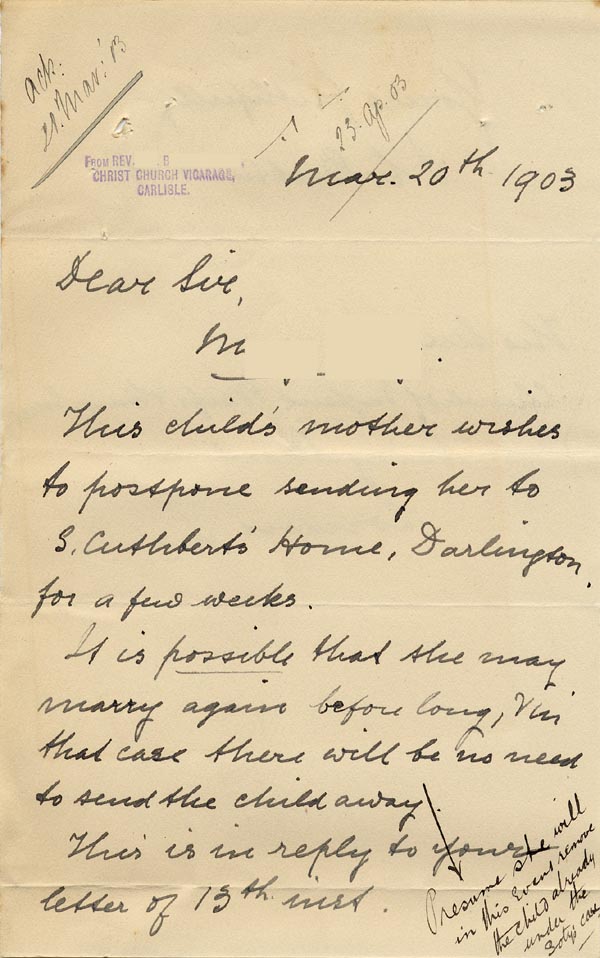 ack:
21. Mar: 03
23. Ap. 03
FROM REV. B
CHRIST CHURCH VICARAGE,
CARLISLE.
Mar. 20th 1903
Dear Sir,
M
This child's mother wishes
to postpone sending her to
S. Cuthbert's Home, Darlington,
for a few weeks.
It is possible that she may
marry again before long, & in
that case there will be no need
to send the child away.
This is in reply to your
letter of 13th inst.
Presume she will
in this Event remove
the child already
under the
Sotys care